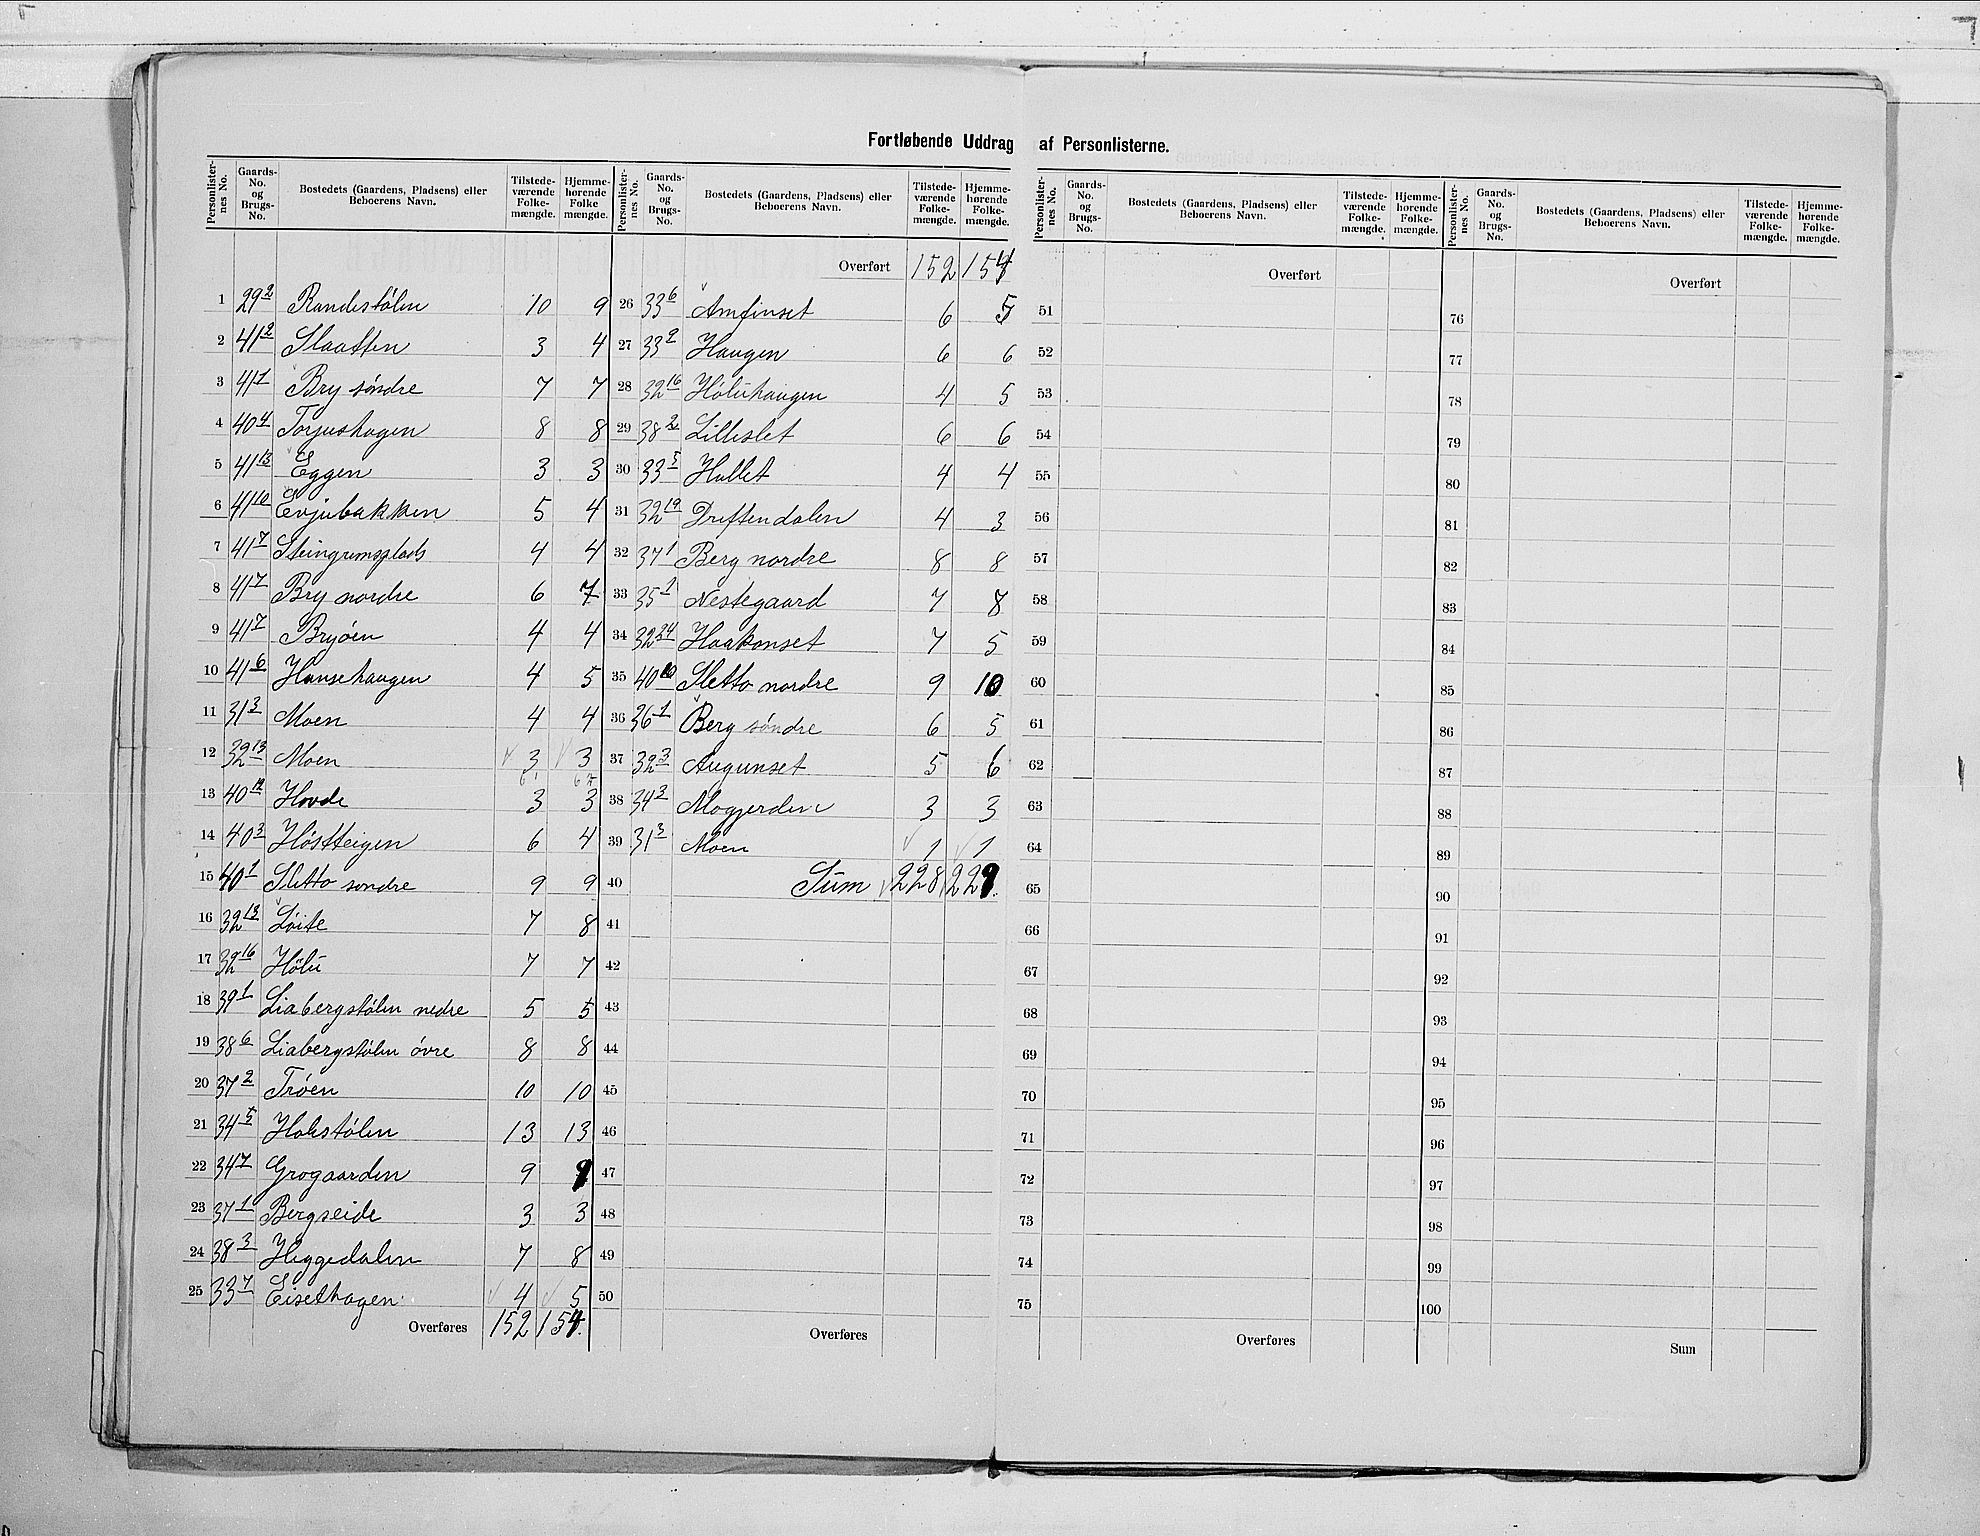 Fortløbende Uddrag af Personlisterne.
Personlister-nes No. Gaards-No. og Brugs-No. Bostedets (Gaardens, Pladsens) eller Beboerens Navn. Tilstede-værende Folke-mængde. Hjemme-hørende Folke mængde.
1 29 2 Randistølen 10 9
2 41 2 Slaatten 3 4
3 41 1 Bry søndre 7 7
4 40 4 Torjushagen 8 8
5 41 13 Eggen 3 3
6 41 10 Evjubakken 5 4
7 41 7 Steingrimsplads 4 4
8 41 7 Bry nordre 6 7
9 41 7 Bryøen 4 4
10 41 6 Hansehaugen 4 5
11 31 3 Moen 4 4
12 32 13 Moen 3 3
13 40 12 Hovde 3 3
14 40 3 Høstteigen 6 4
15 40 1 Sletto søndre 9 9
16 32 13 Løite 7 8
17 32 16 Hølu 7 7
18 39 1 Liabergstølen nedre 5 5
19 38 6 Liabergstølen øvre 8 8
20 37 2 Trøen 10 10
21 34 5 Holestølen 13 13
22 34 7 Grogaarden 9 9
23 37 1 Bergseide 3 3
24 38 3 Heggedalen 7 8
25 33 7 Eisethagen 4 5
Overføres 152 154
Personlister-nes No. Gaards-No. og Brugs-No. Bostedets (Gaardens, Pladsens) eller Beboerens Navn. Tilstede-værende Folke-mængde. Hjemme-hørende Folke-mængde.
Overført 152 154
26 33 6 Arnfinset 6 5
27 33 2 Haugen 6 6
28 32 16 Høluhaugen 4 5
29 38 2 Lilleslet 6 6
30 33 5 Hallet 4 4
31 32 19 Driftendalen 4 3
32 37 1 Berg nordre 8 8
33 35 1 Nestegaard 7 8
34 32 24 Haakonset 7 5
35 40 10 Sletto nordre 9 10
36 36 1 Berg søndre 6 5
37 32 3 Augunset 5 6
38 34 3 Mogjerden 3 3
39 31 3 Moen 1 1
40 Sum 228 229
41
42
43
44
45
46
47
48
49
50
Overføres
Personlister-nes No. Gaards-No. og Brugs-No. Bostedets (Gaardens, Pladsens) eller Beboerens Navn. Tilstede-værende Folke-mængde. Hjemme-hørende Folke-mængde.
Overført
51
52
53
54
55
56
57
58
59
60
61
62
63
64
65
66
67
68
69
70
71
72
73
74
75
Overføres
Personlister-nes No. Gaards-No. og Brugs-No. Bostedets (Gaardens, Pladsens) eller Beboerens Navn. Tilstede-værende Folke-mængde. Hjemme-hørende Folke-mængde.
Overført
76
77
78
79
80
81
82
83
84
85
86
87
88
89
90
91
92
93
94
95
96
97
98
99
100
Sum